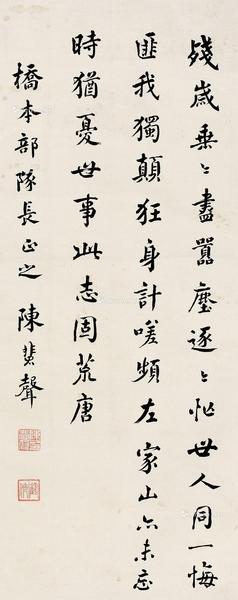 殘歲垂〻盡囂塵逐〻忙世人同一悔
匪我獨顛狂身計嗟頻左家山亦未忘
時猶憂世事此志固荒唐
橋本部隊長正之 陳蜚聲